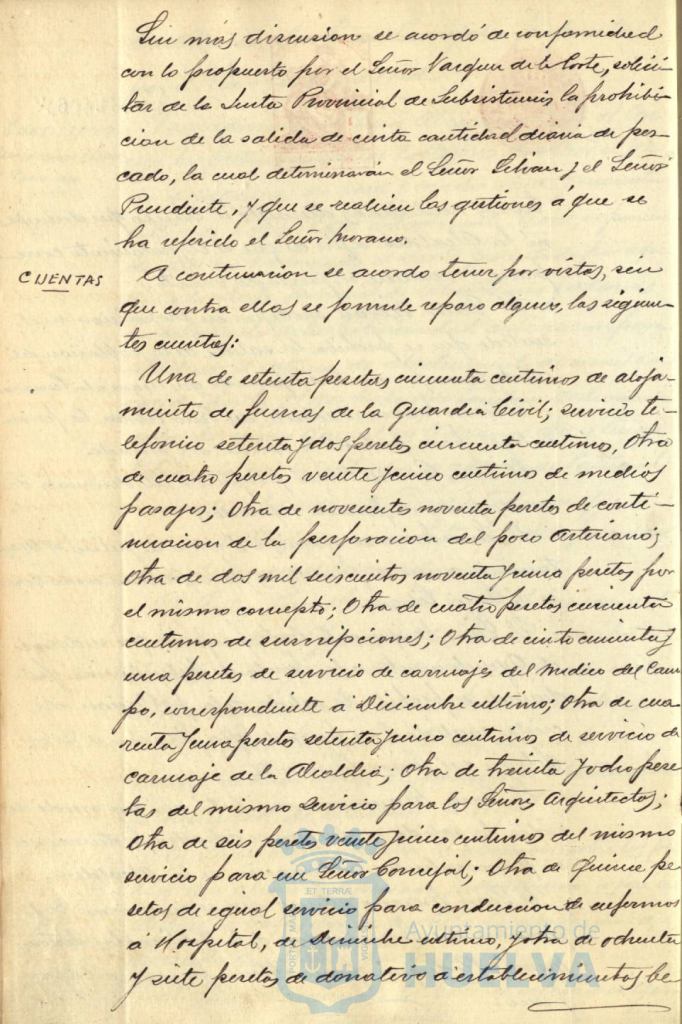 Sin más discusion se acordó de conformidad
con lo propuesto por el Señor Vazquez de la Corte, solici-
tar de la Junta Provincial de Subsistencias la prohibi-
cion de la salida de cierta cantidad diaria de pes-
cado, la cual determinarán el Señor Silvan y el Señor
Presidente, y que se realicen las gestiones á que se
ha referido el Señor Morano.
CUENTAS
A continuacion se acordo tener por vistas, sin
que contra ellas se formule reparo alguno, las siguien-
tes cuentas:
Una de setenta pesetas cincuenta centimos de aloja-
miento de fuerzas de la Guardia Civil; servicio te-
lefonico setenta y dos pesetas cincuenta centimos, Otra
de cuatro pesetas veinte y cinco centimos de medios
pasajes; Otra de novecientas noventa pesetas de conti-
nuacion de la perforacion del pozo Artesiano;
Otra de dos mil seiscientos noventa y cinco pesetas por
el mismo concepto; Otra de cuatro pesetas cincuenta
centimos de suscripciones; Otra de ciento cincuenta y
una pesetas de servicio de carruajes del Medico del Cam-
po, correspondiente á Diciembre ultimo; Otra de cua-
renta y una pesetas setenta y cinco centimos de servicio de
carruaje de la Alcaldia; Otra de treinta y ocho pese-
tas del mismo servicio para los Señores Arquitectos;
Otra de seis pesetas veinte y cinco centimos del mismo
servicio para un Señor Concejal; Otra de Quince pe-
setas de igual servicio para conduccion de enfermos
á Hospital, de Diciembre ultimo, y otra de ochenta
y siete pesetas de donativo á establecimientos be-
Ayuntamiento de
HUELVA